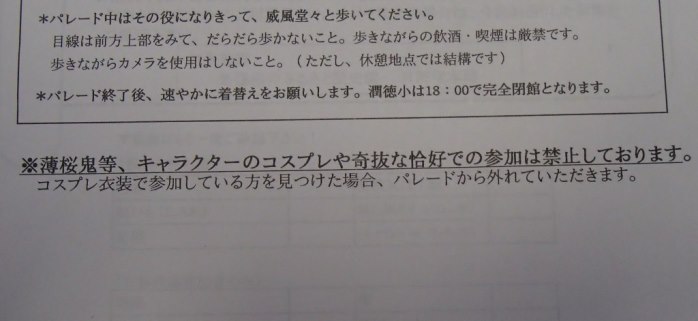 *パレード中はその役になりきって、威風堂々と歩いてください。
目線は前方上部をみて、だらだら歩かないこと。歩きながらの飲酒・喫煙は厳禁です。
歩きながらカメラを使用はしないこと。（ただし、休憩地点では結構です）
*パレード終了後、速やかに着替えをお願いします。潤徳小は18：00で完全閉館となります。
※薄桜鬼等、キャラクターのコスプレや奇抜な恰好での参加は禁止しております。
コスプレ衣装で参加している方を見つけた場合、パレードから外れていただきます。